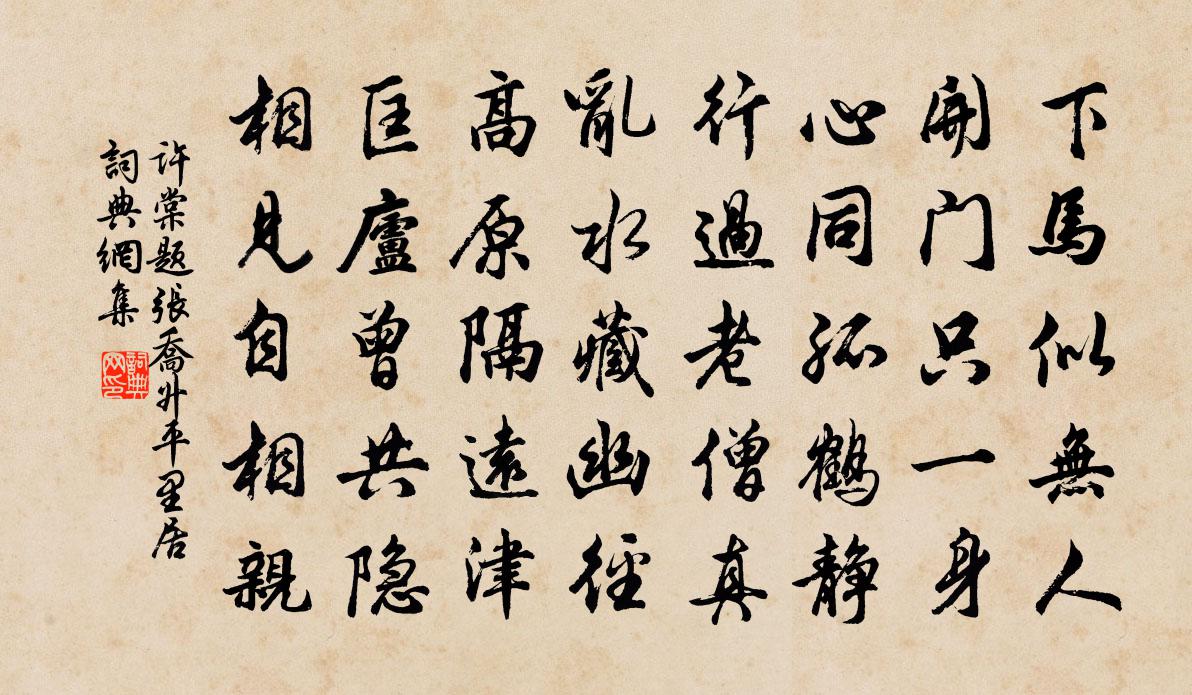 下馬似無人
開门只一身
心同孤鶴静
行過老僧真
亂水藏幽徑
高原隔遠津
匡廬曾共隐
相見自相親
许棠题張喬升平里居
詞典網集
詞典网印